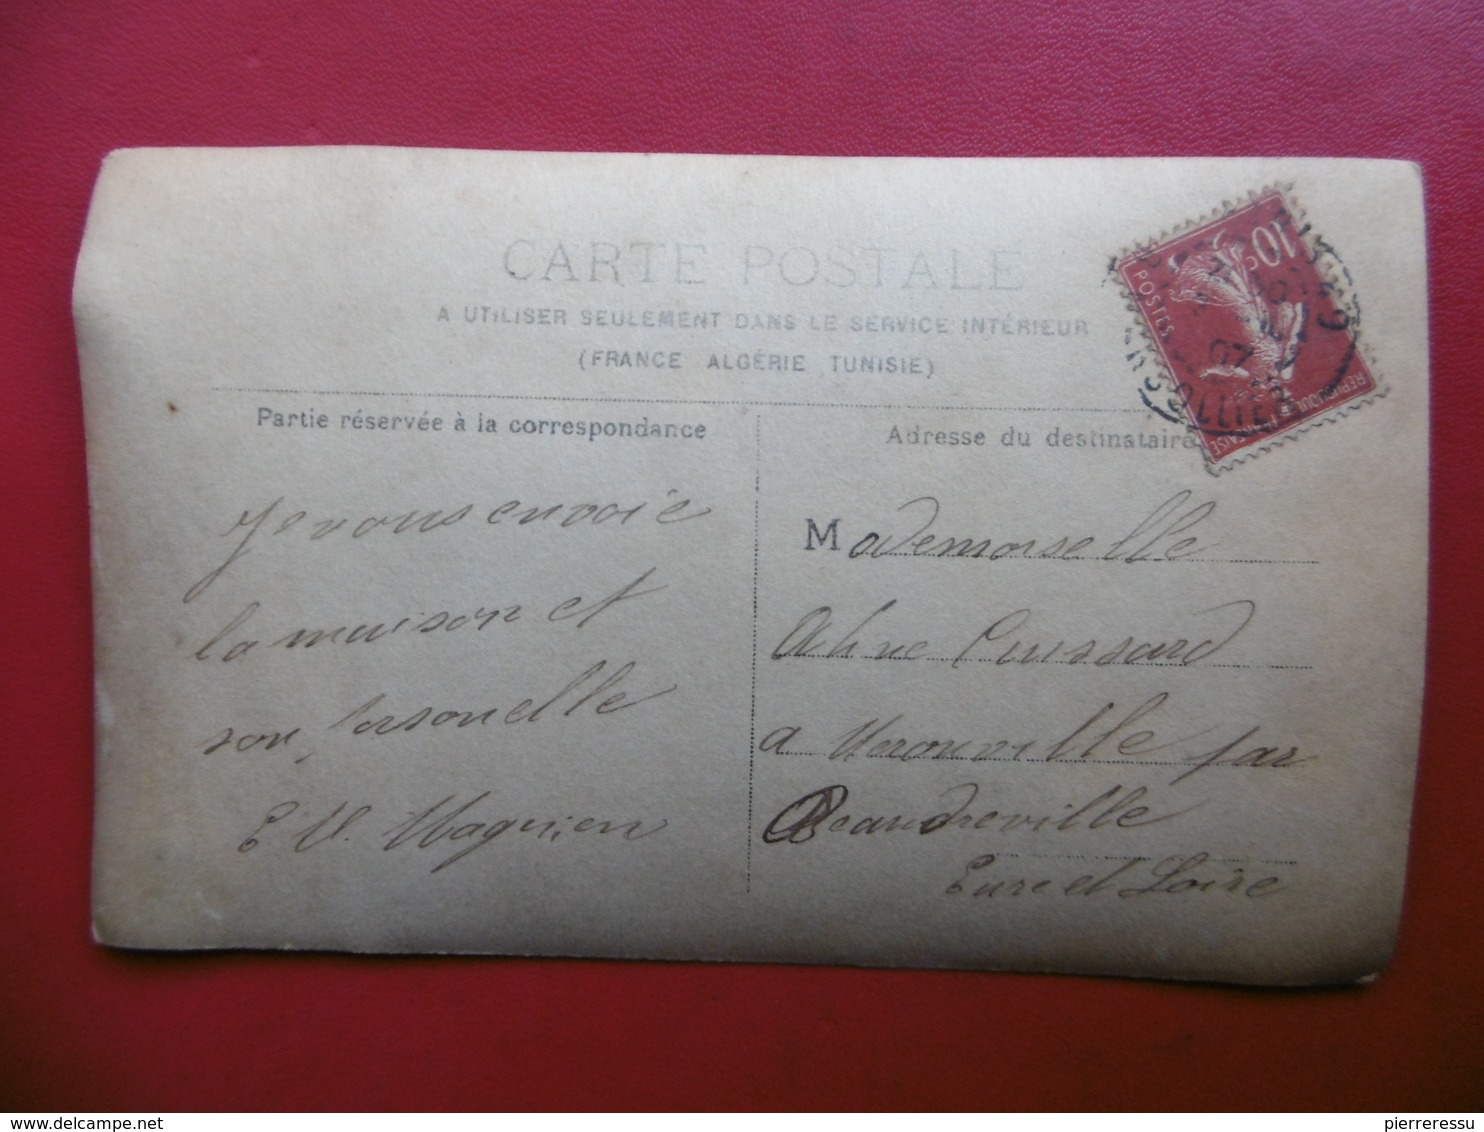 CARTE POSTALE
A UTILISER SEULEMENT DANS LE SERVICE INTÉRIEUR
(FRANCE ALGÉRIE TUNISIE)
Partie réservée à la correspondance
Je vous envoie
la maison et
son personelle
E V. Magnien
Adresse du destinataire
Mademoiselle
Aline Cuissard
a Merouville par
Beaudreville
Eure et Loire
10
POSTES
07
delcampe.net
pierreressu